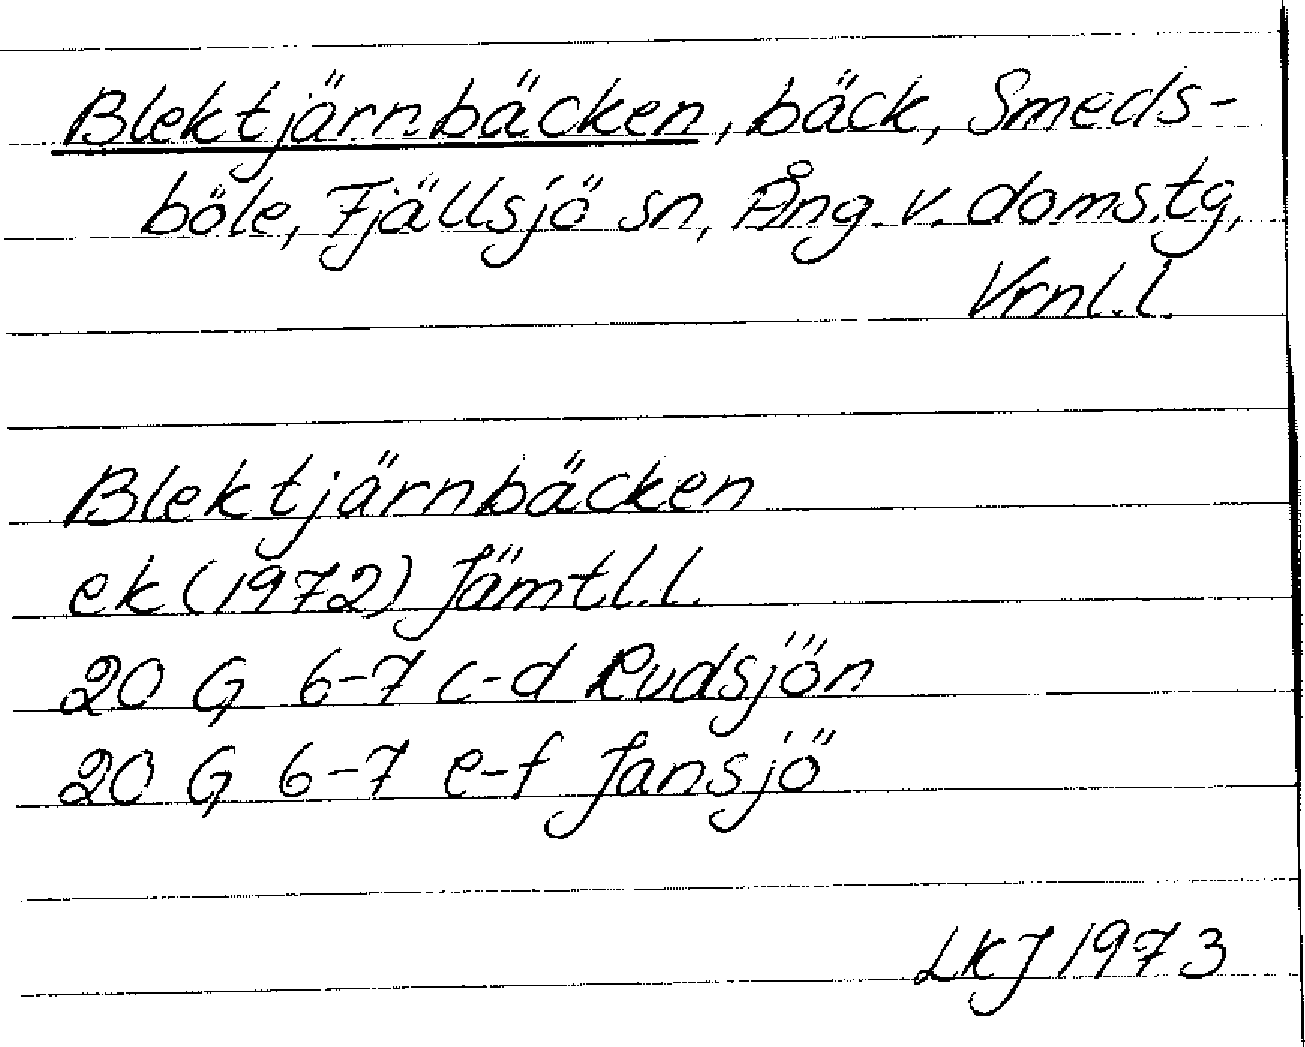 Blektjärnbäcken, bäck, Smeds-
böle, Fjällsjö sn, Ång. v. doms.tg,
Vrnl.l.
Blektjärnbäcken
ek (1972) Jämtl.l.
20 G 6-7 c-d Rudsjön
20 G 6-7 e-f Jansjö
LKJ 1973